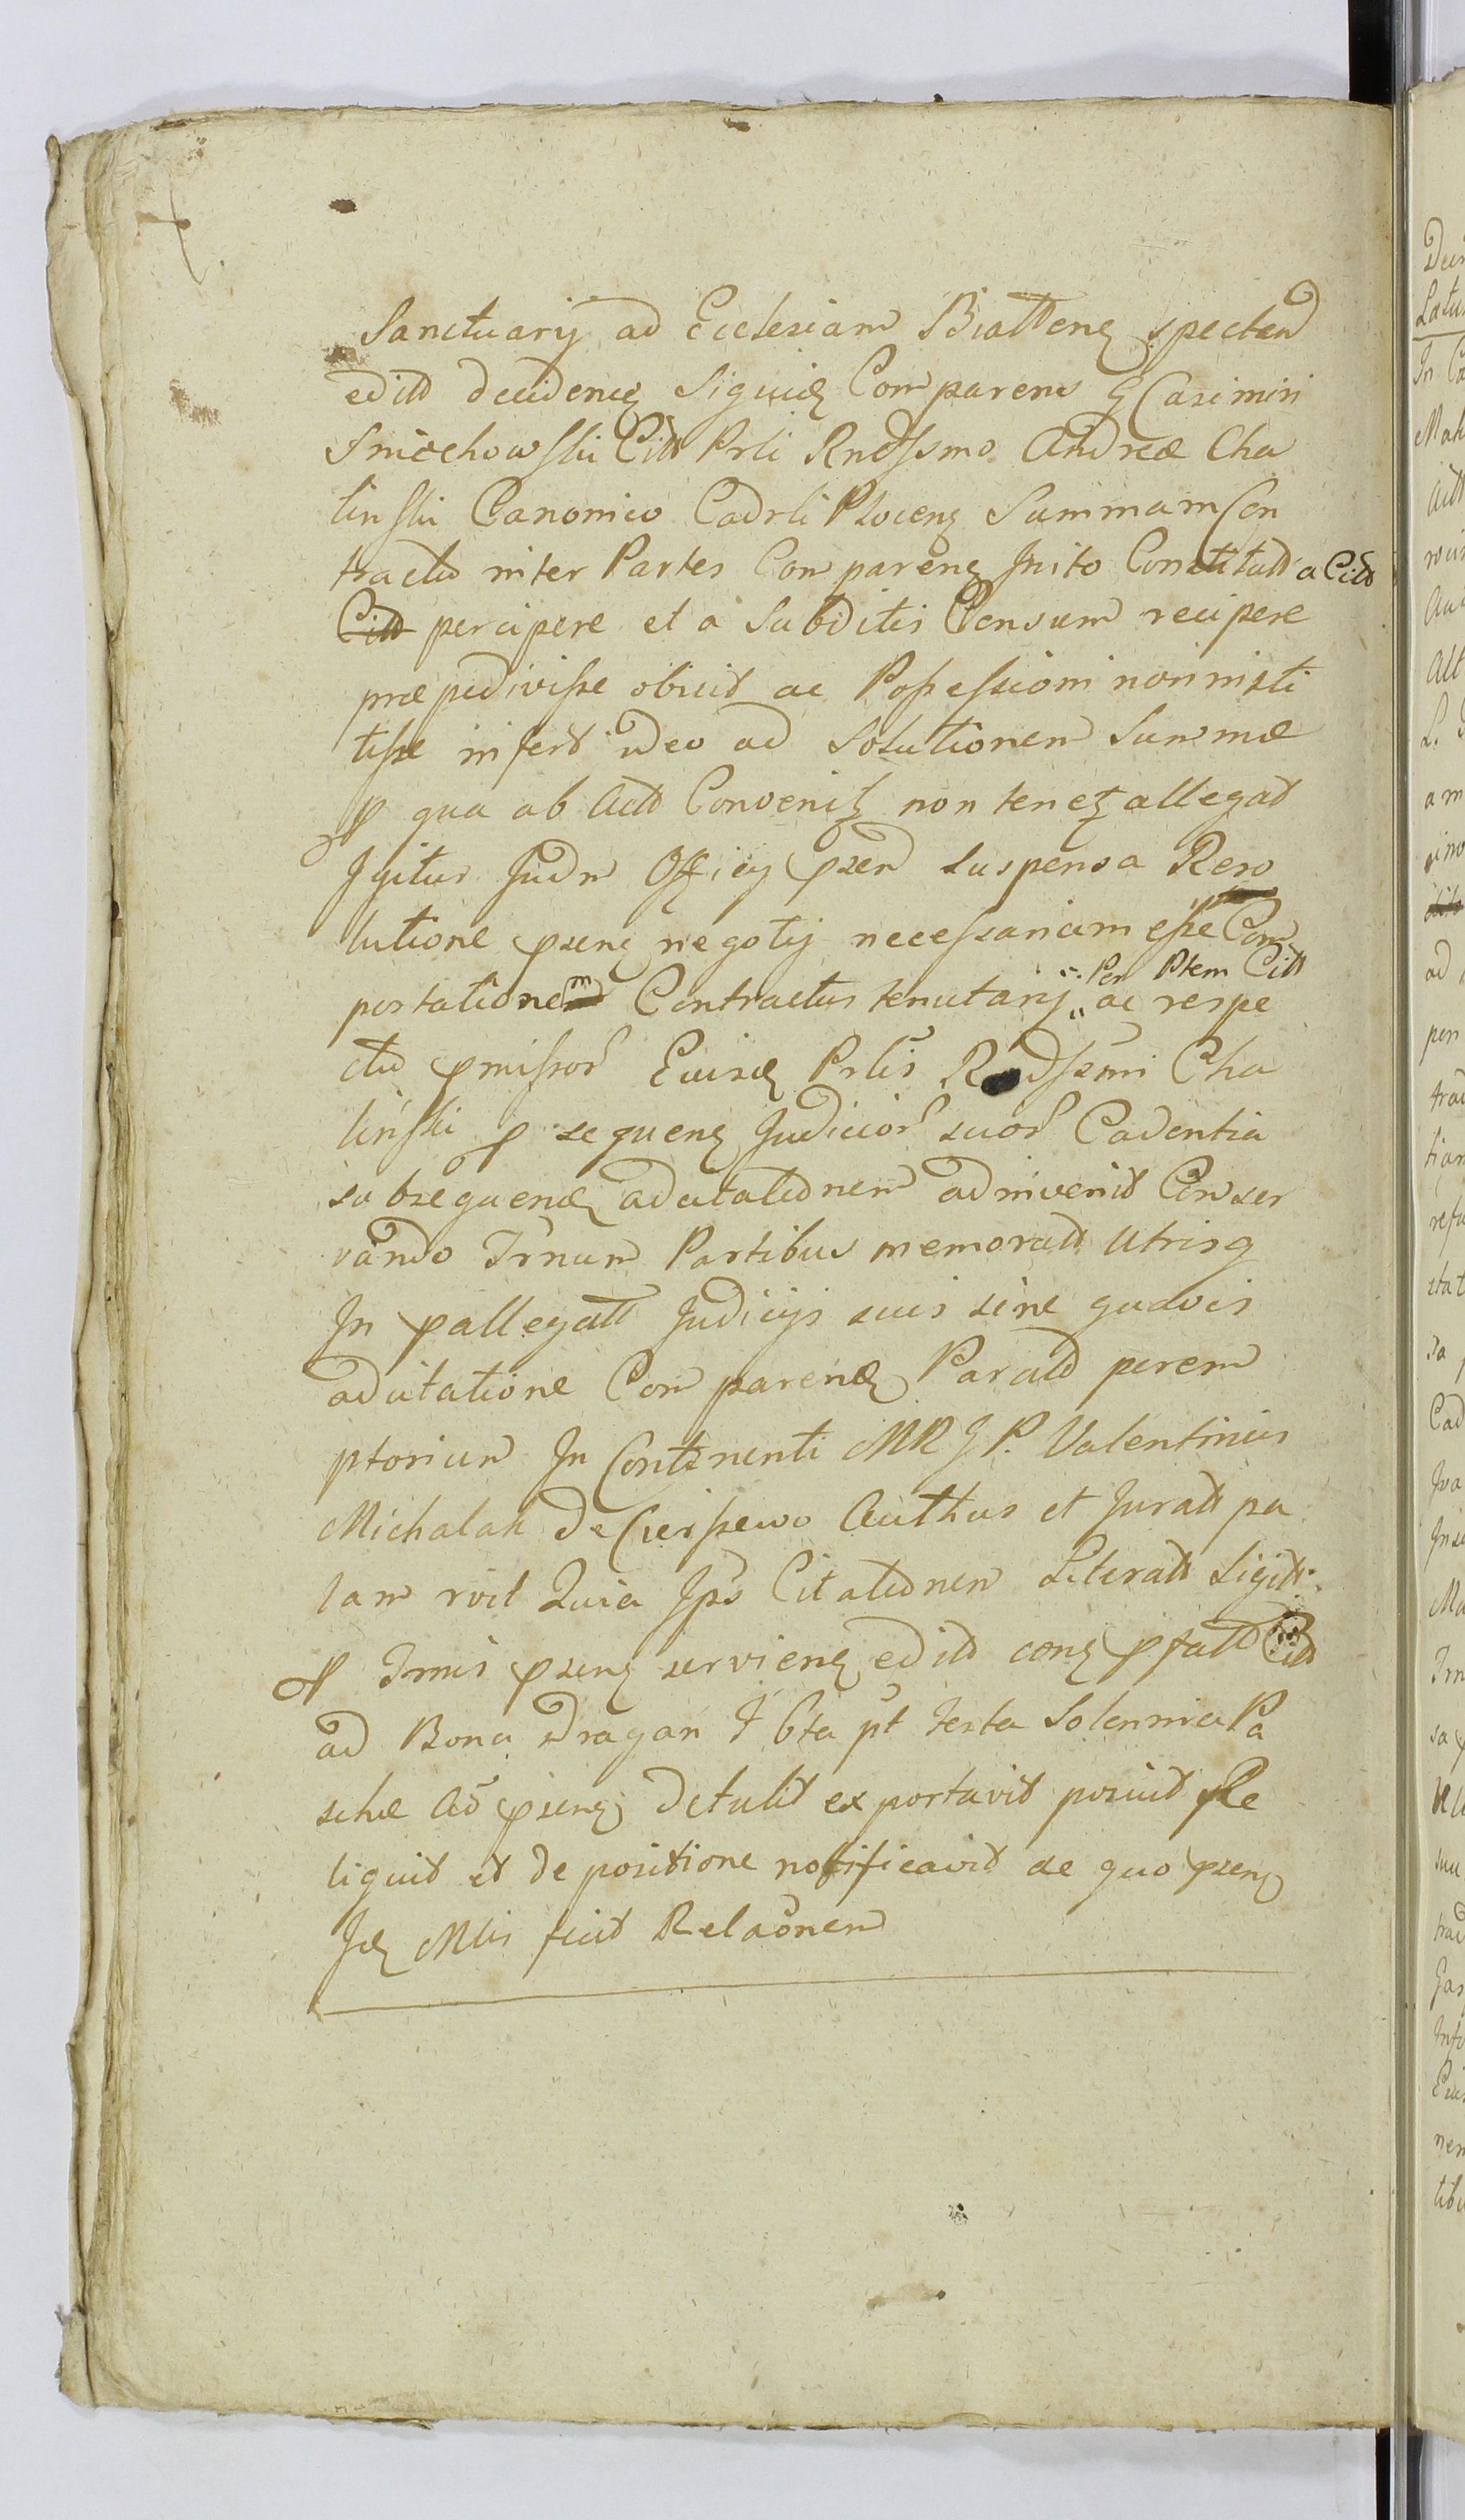 Sanctuarij ad Ecclesiam Biatten spectan
edito decidene Siquid Comparens G Casimiri
Smiechowski Citt Prli Rndssmo Andreæ Cha
linski Canonico Cadrli Plocen Summam Con
tractu inter Partes Comparen Inito Constitutt a Citt
Citt percipere et a Subditis Censum recipere
præpedivisse obiicit ac Possessioni non insti
tisse infert ideo ad Solutionem Summæ
P qua ab Actt Convenit non tenet allegat
Igitur Judm Officij psen suspensa Reso
lutione psen negotij necessariam esse Com
portationem Contractus tenutarij Per Ptem Citt ac respe
ctu pmissor Eiusd Prlis Rndssmi Cha
linski P sequen Judicior suor Cadentia
subsequend adcitationem adinvenit Conser
vando Trnum Partibus memoratt Utrisq
In pallegatt Judicijs suis sine quavis
adcitatione Comparend Paratt perem
ptorium In Continenti MRJP. Valentinus
Michalak De Cierszewo Authus et Juratt pa
lam roit Quia Ips Citationem Literatt Sigitt
P Trmis psen servien edito con pfatt Citt
ad Bona Dragan F 6ta pt festa Solennia Pa
schæ Ao psen detulit exportavit posuit Re
liquit et de positione notificavit de quo psen
Id Mlis fecit Relaonem